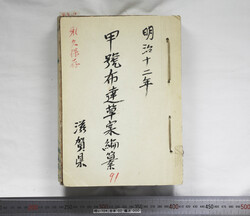 明治十二年
甲號布達草案編纂
滋賀県
永久保存
91